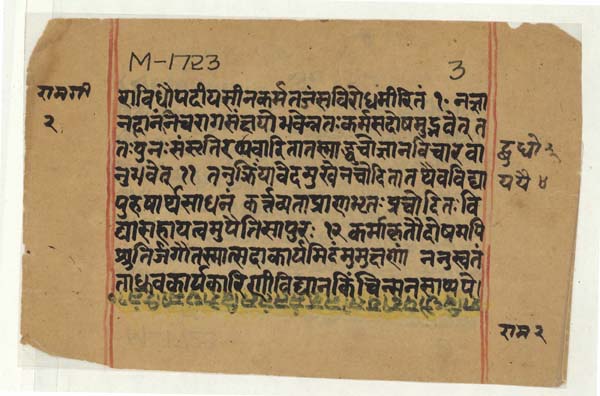 M-1723
3
रामगी
२
राविधौपटीयसीनकर्मतज्जंसविरोधमीरितं १० नाज्ञा
नहानंनैचरागसंक्षयोभवेत्ततःकर्मसदोषमुद्भवेत् त
तःपुनःसंसृतिरप्यवारितातस्माद्बुधोज्ञानविचारवा
नुभवेत् ११ ननुक्रियावेदमुखेनचोदितातथैवविद्या
पुरुषार्थसाधनं कर्त्तव्यताप्राणभृतःप्रचोदितःवि
द्यासहायत्वमुपैतिसापुरः १२ कर्माकृतौदोषमपि
श्रुतिर्जगौतस्मात्सदाकार्यमिदंमुमुक्षुणा ननुस्वतं
ताध्रुवकार्यकारिणीविद्यानकिंचिन्मनसाप्यपे।
राम २